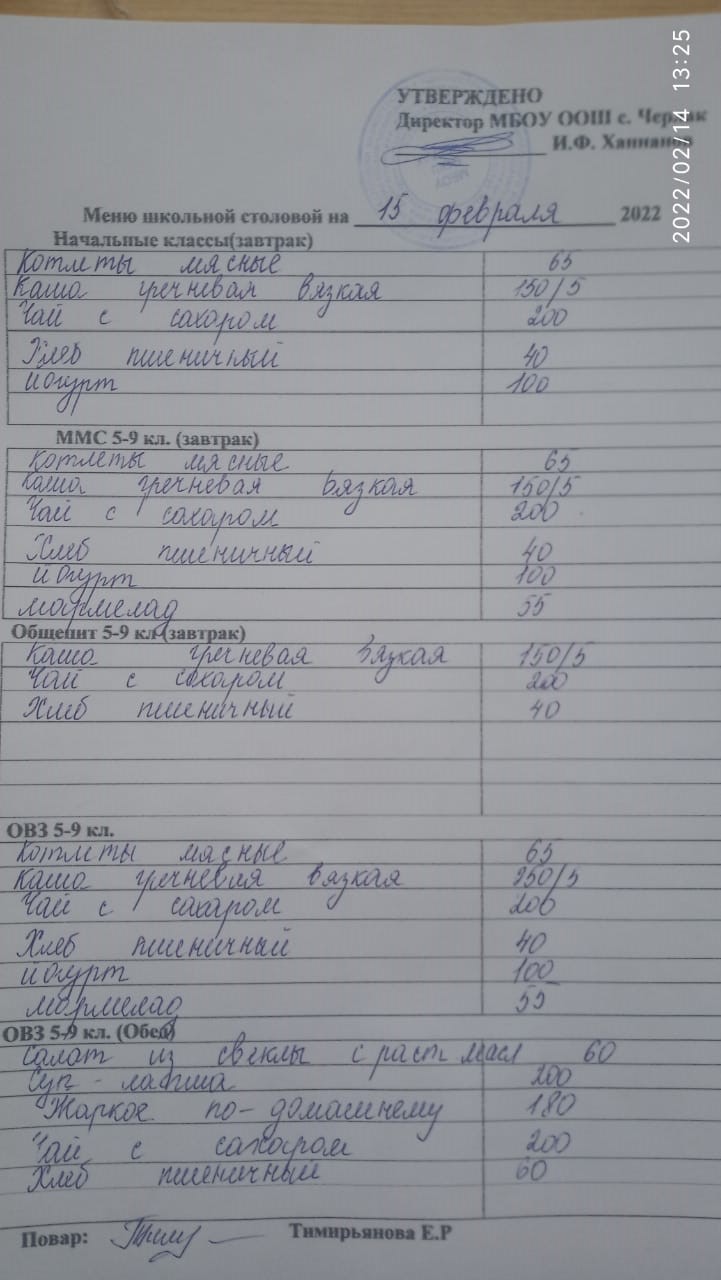 УТВЕРЖДЕНО
Директор МБОУ ООШ с.
И.Ф.
2022/02/14 13:25
Меню школьной столовой на 15 февраля 2022
Начальные классы(завтрак)
Котлеты мясные 65
Каша гречневая вязкая 150/5
Чай с сахаром 200
Хлеб пшеничный 40
йогурт 100
ММС 5-9 кл. (завтрак)
Котлеты мясные 65
Каша гречневая вязкая 150/5
Чай с сахаром 200
Хлеб пшеничный 40
йогурт 100
мармелад 55
Общепит 5-9 кл (завтрак)
Каша гречневая вязкая 150/5
Чай с сахаром 200
Хлеб пшеничный 40
ОВЗ 5-9 кл.
Котлеты мясные 65
Каша гречневая вязкая 250/5
Чай с сахаром 200
Хлеб пшеничный 40
йогурт 100
мармелад 55
ОВЗ 5-9 кл. (Обед)
Салат из свеклы с раст масл 60
Суп - лапша 200
Жаркое по-домашнему 180
Чай с сахаром 200
Хлеб пшеничный 60
Повар: Тимирьянова Е.Р